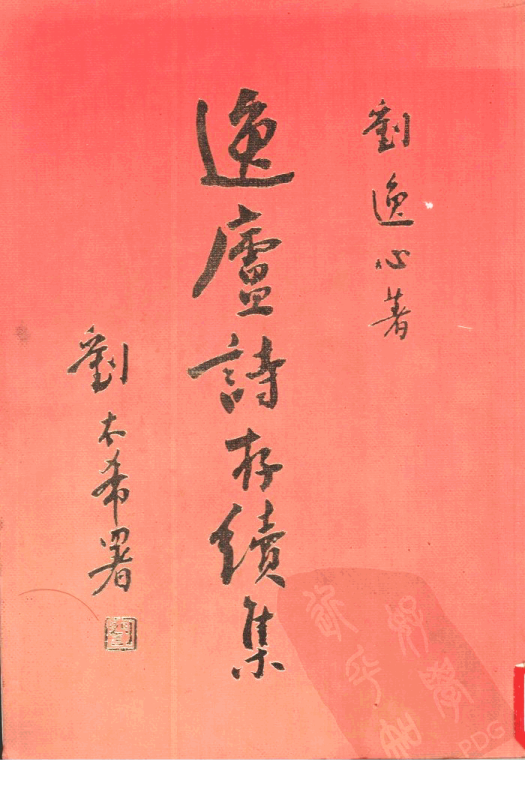 劉逸心著
逸廬詩存續集
劉太希署
PDG